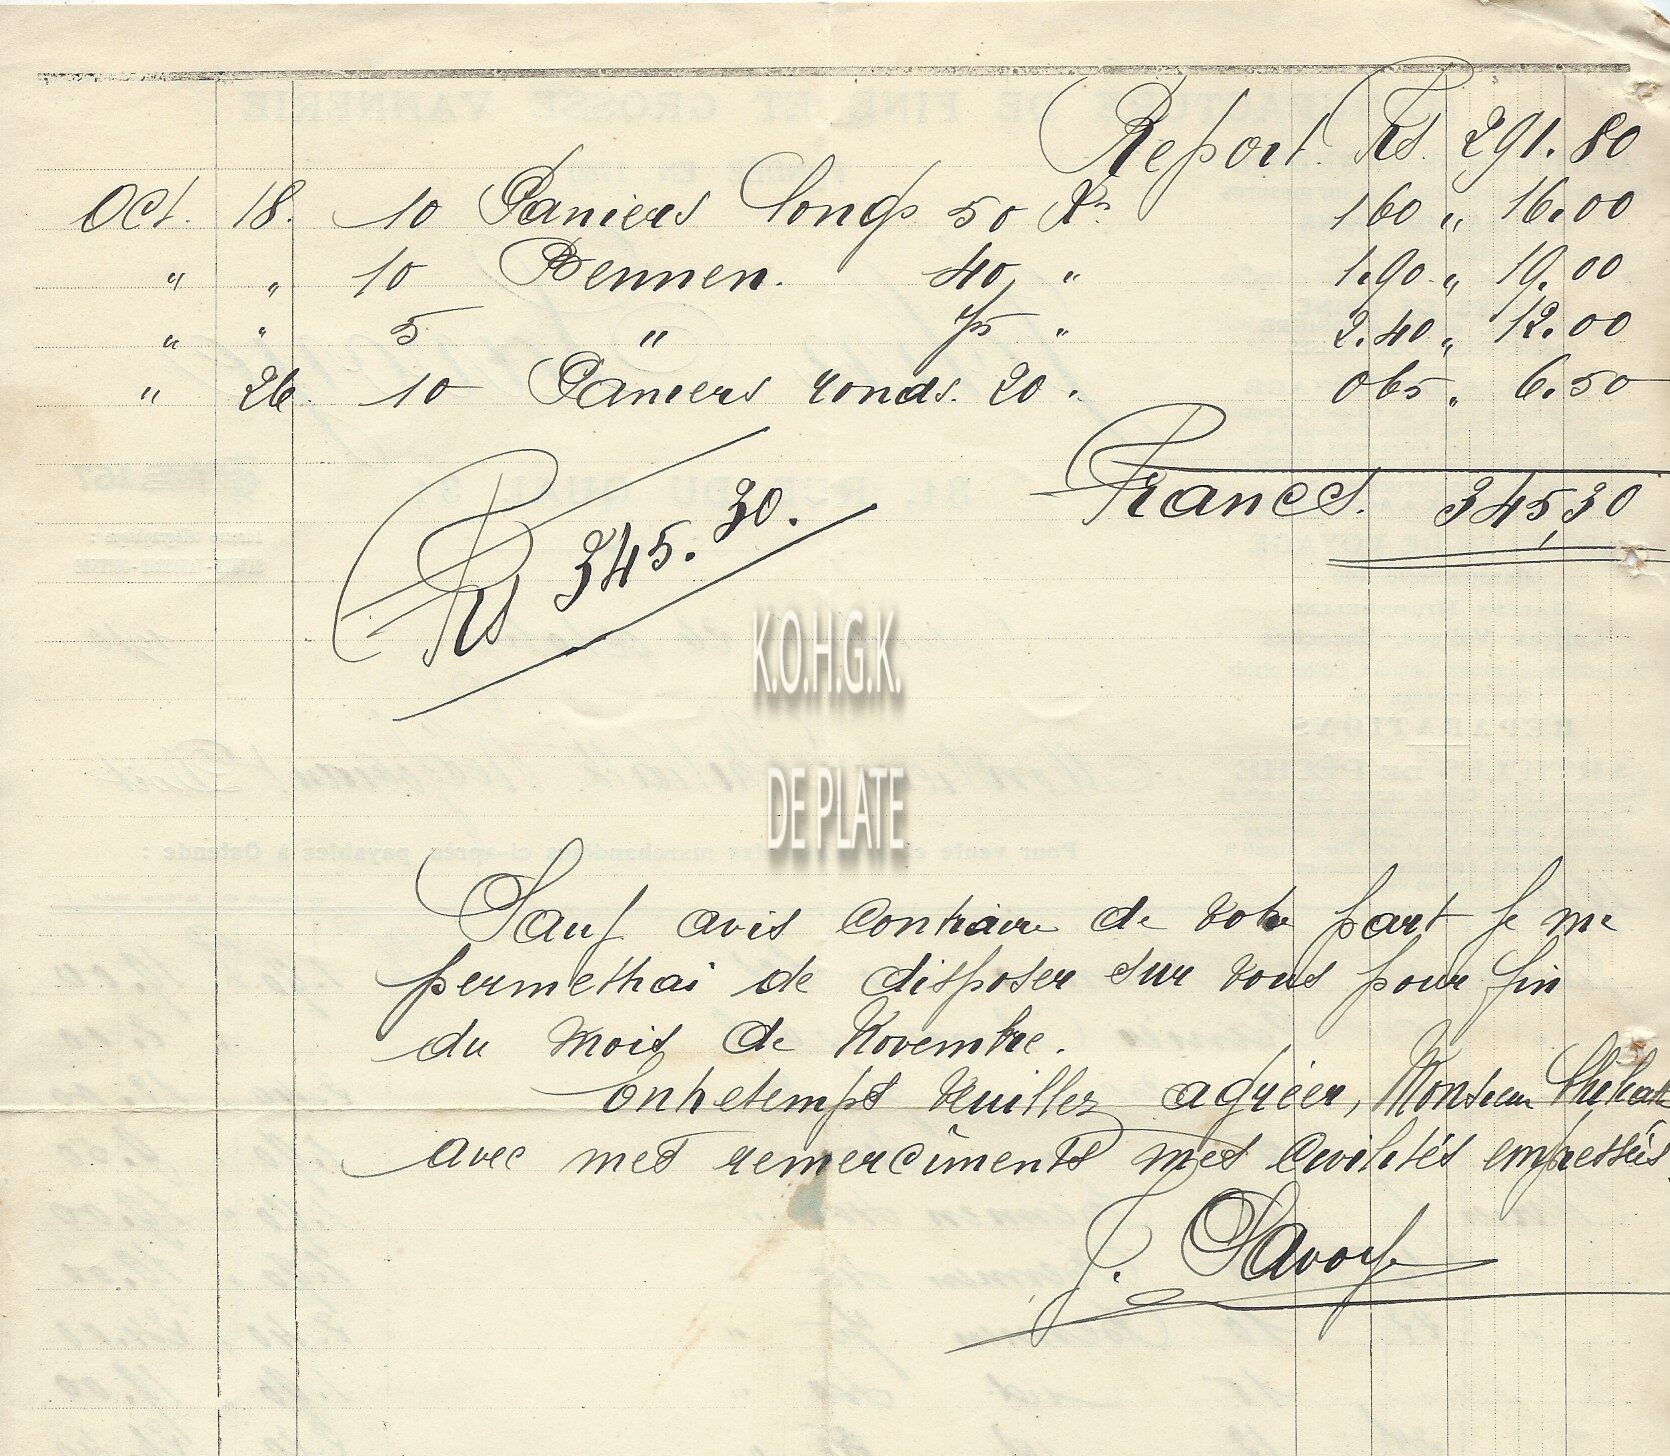 Report. Frs. 291.80
Oct. 18. 10 Paniers longs 50 Ks 160 " 16.00
" " 10 Bennen. 40 " 1.90 " 19.00
" " 5 " 75 " 2.40 " 12.00
" 26. 10 Paniers ronds. 20 " 065 " 6.50
Francs. 345,30
Frs 345.30.
K.O.H.G.K.
DE PLATE
Pour vente des marchandises ci-après, payables à Ostende :
Sauf avis contraire de votre part je me
permettrai de disposer sur vous pour fin
du mois de Novembre.
Entretemps veuillez agréer, Monsieur
avec mes remerciments mes civilités empressées
J. Savoye